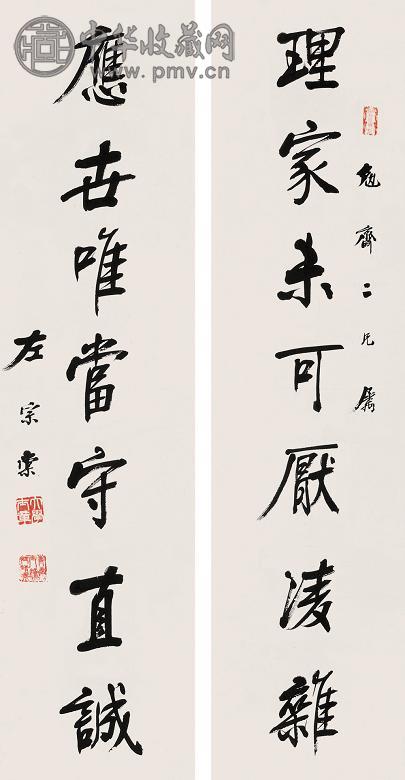 中华收藏网
www.pmv.cn
勉齋二兄屬
理家未可厭凌雜
應世唯當守直誠
左宗棠
大學士章